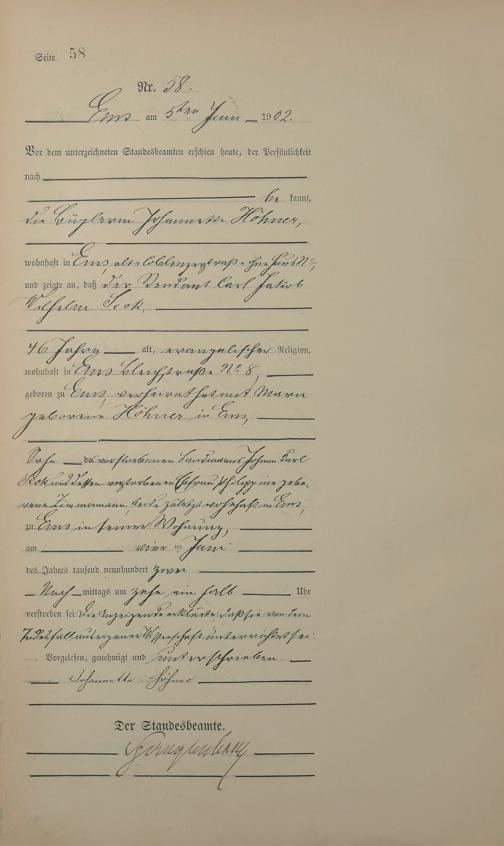 Seite 58
Nr. 58.
Ems am 5ten Juni 1902.
Vor dem unterzeichneten Standesbeamten erschien heute, der Persönlichkeit
nach
be kannt,
die Büglerin Johannette Höhner,
wohnhaft in Ems, alte Coblenzerstraße ohne Haus No,
und zeigte an, daß der Rendant Carl Jakob
Wilhelm Seck,
46 Jahre alt, evangelischer Religion,
wohnhaft in Ems Bleichstraße No 8,
geboren zu Ems, verheirathet mit Marie
geborene Höhner in Ems,
Sohn des verstorbenen Landmanns Johann Karl
Seck und dessen verstorbenen Ehefrau Philippine gebo-
rene Zimmermann, beide zuletzt wohnhaft in Ems,
zu Ems in seiner Wohnung,
am vier ten Juni
des Jahres tausend neunhundert zwei
Nach mittags um zehn ein halb Uhr
verstorben sei. Die Anzeigende erklärte, daß sie von dem
Todesfall aus eigener Wissenschaft unterrichtet sei.
Vorgelesen, genehmigt und unterschrieben.
Johannette Höhner
Der Standesbeamte.